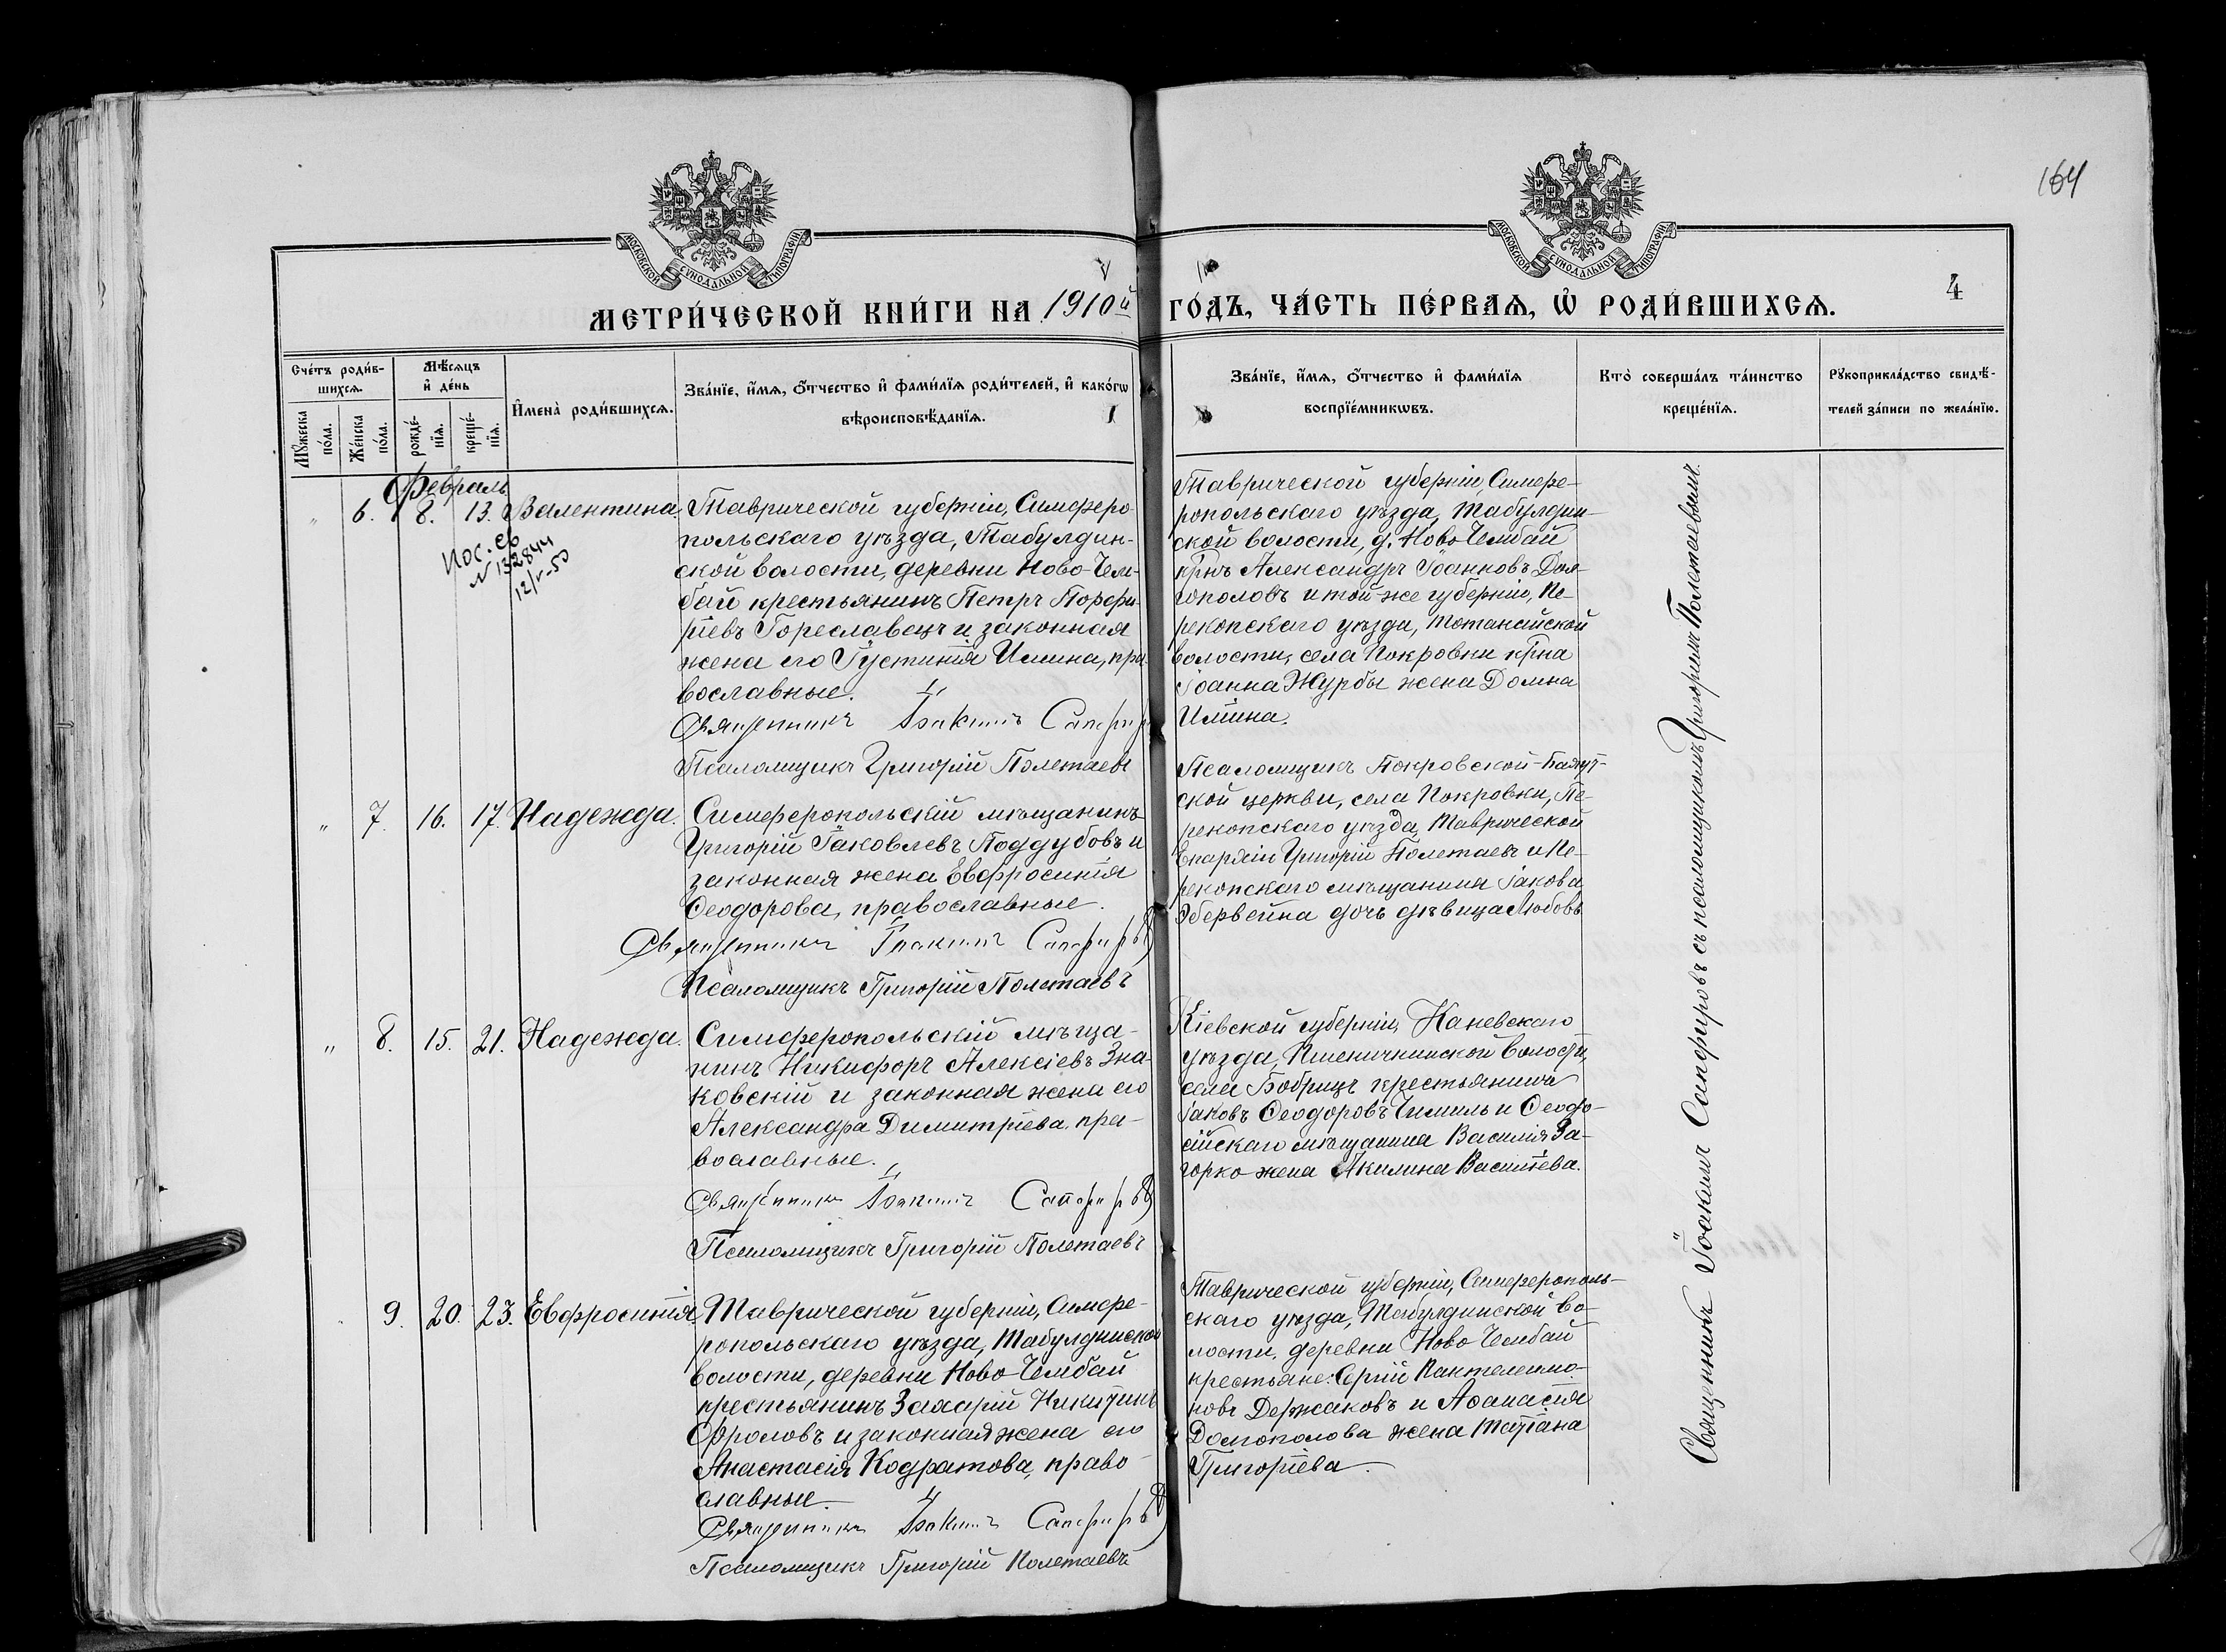 164
МОСКОВСКОЙ СѴНОДАЛЬНОЙ ТИПОГРАФІИ
МОСКОВСКОЙ СѴНОДАЛЬНОЙ ТИПОГРАФІИ
4
МЕТРИ́ЧЕСКОЙ КНИ́ГИ НА 1910й ГО́ДЪ, ЧА́СТЬ ПЕ́РВАѦ, Ѡ҆ РОДИ́ВШИХСѦ.
Сче́тъ роди́в-
шихсѧ.
Мꙋ́жеска по́ла.
Же́нска по́ла.
Мѣ́сѧцъ
и҆ де́нь
рожде́-
нїѧ.
креще́-
нїѧ.
И҆мена̀ роди́вшихсѧ.
Зва́нїе, и҆́мѧ, ѻ҆́тчество и҆ фами́лїѧ роди́телей, и҆ како́гѡ
вѣроисповѣ́данїѧ.
Зва́нїе, и҆́мѧ, ѻ҆́тчество и҆ фами́лїѧ
воспрїе́мникѡвъ.
Кто̀ соверша́лъ та́инство
креще́нїѧ.
Рꙋкоприкла́дство свидѣ́-
телей за́писи по жела́нїю.
Февраль
" 6. 8. 13. Валентина.
N 132844
12/V-50
Таврической губерніи, Симферо-
польскаго уѣзда, Табулдин-
ской волости, деревни Ново-Чем-
бай крестьянинъ Петръ Порфи-
ріевъ Гореславецъ и законная
жена его Іустинія Илиина, пра-
вославные.
Священникъ Іоакимъ Сапфировъ
Псаломщикъ Григорій Полетаевъ
Таврической губерніи, Симфе-
ропольскаго уѣзда, Табулдин-
ской волости, д. Ново-Чембай
крнъ Александръ Іоанновъ Дол-
гополовъ и той же губерніи, Пе-
рекопскаго уѣзда, Тотанайской
волости, села Покровки крна
Іоанна Журбы жена Домна
Илиина.
" 7. 16. 17. Надежда.
Симферопольскій мѣщанинъ
Григорій Іаковлевъ Поддубовъ и
законная жена Евфросинія
Ѳеодорова, православные.
Священникъ Іоакимъ Сапфировъ
Псаломщикъ Григорій Полетаевъ
Псаломщикъ Покровской-
ской церкви, села Покровки, Пе-
рекопскаго уѣзда, Таврической
Епархіи Григорій Полетаевъ и Пе-
рекопскаго мѣщанина Іакова
Эбервейна дочь дѣвица Любовь
" 8. 15. 21. Надежда.
Симферопольскій мѣща-
нинъ Никифоръ Алексіевъ Зна-
ковскій и законная жена его
Александра Димитріева, пра-
вославные.
Священникъ Іоакимъ Сапфировъ
Псаломщикъ Григорій Полетаевъ
Кіевской губерніи, Каневскаго
уѣзда, Пшеничнинской волости,
села Бобрицъ крестьянинъ
Іаковъ Ѳеодоровъ Чимиль и Ѳеодо-
сійскаго мѣщанина Василія За-
горко жена Акилина Василіева.
9. 20. 23. Евфросинія.
Таврической губерніи, Симфе-
ропольскаго уѣзда, Табулдинской
волости, деревни Ново-Чембай
крестьянинъ Захарій Никитинъ
Фроловъ и законная жена его
Анастасія Кодратова, право-
славные.
Священникъ Іоакимъ Сапфировъ
Псаломщикъ Григорій Полетаевъ
Таврической губерніи, Симферополь-
скаго уѣзда, Табулдинской во-
лости, деревни Ново-Чембай
крестьяне: Сергій Пантелеимо-
новъ Держаковъ и Аѳанасія
Долгополова жена Татіана
Григоріева.
Священникъ Іоакимъ Сапфировъ съ псаломщикомъ Григоріемъ Полетаевымъ.